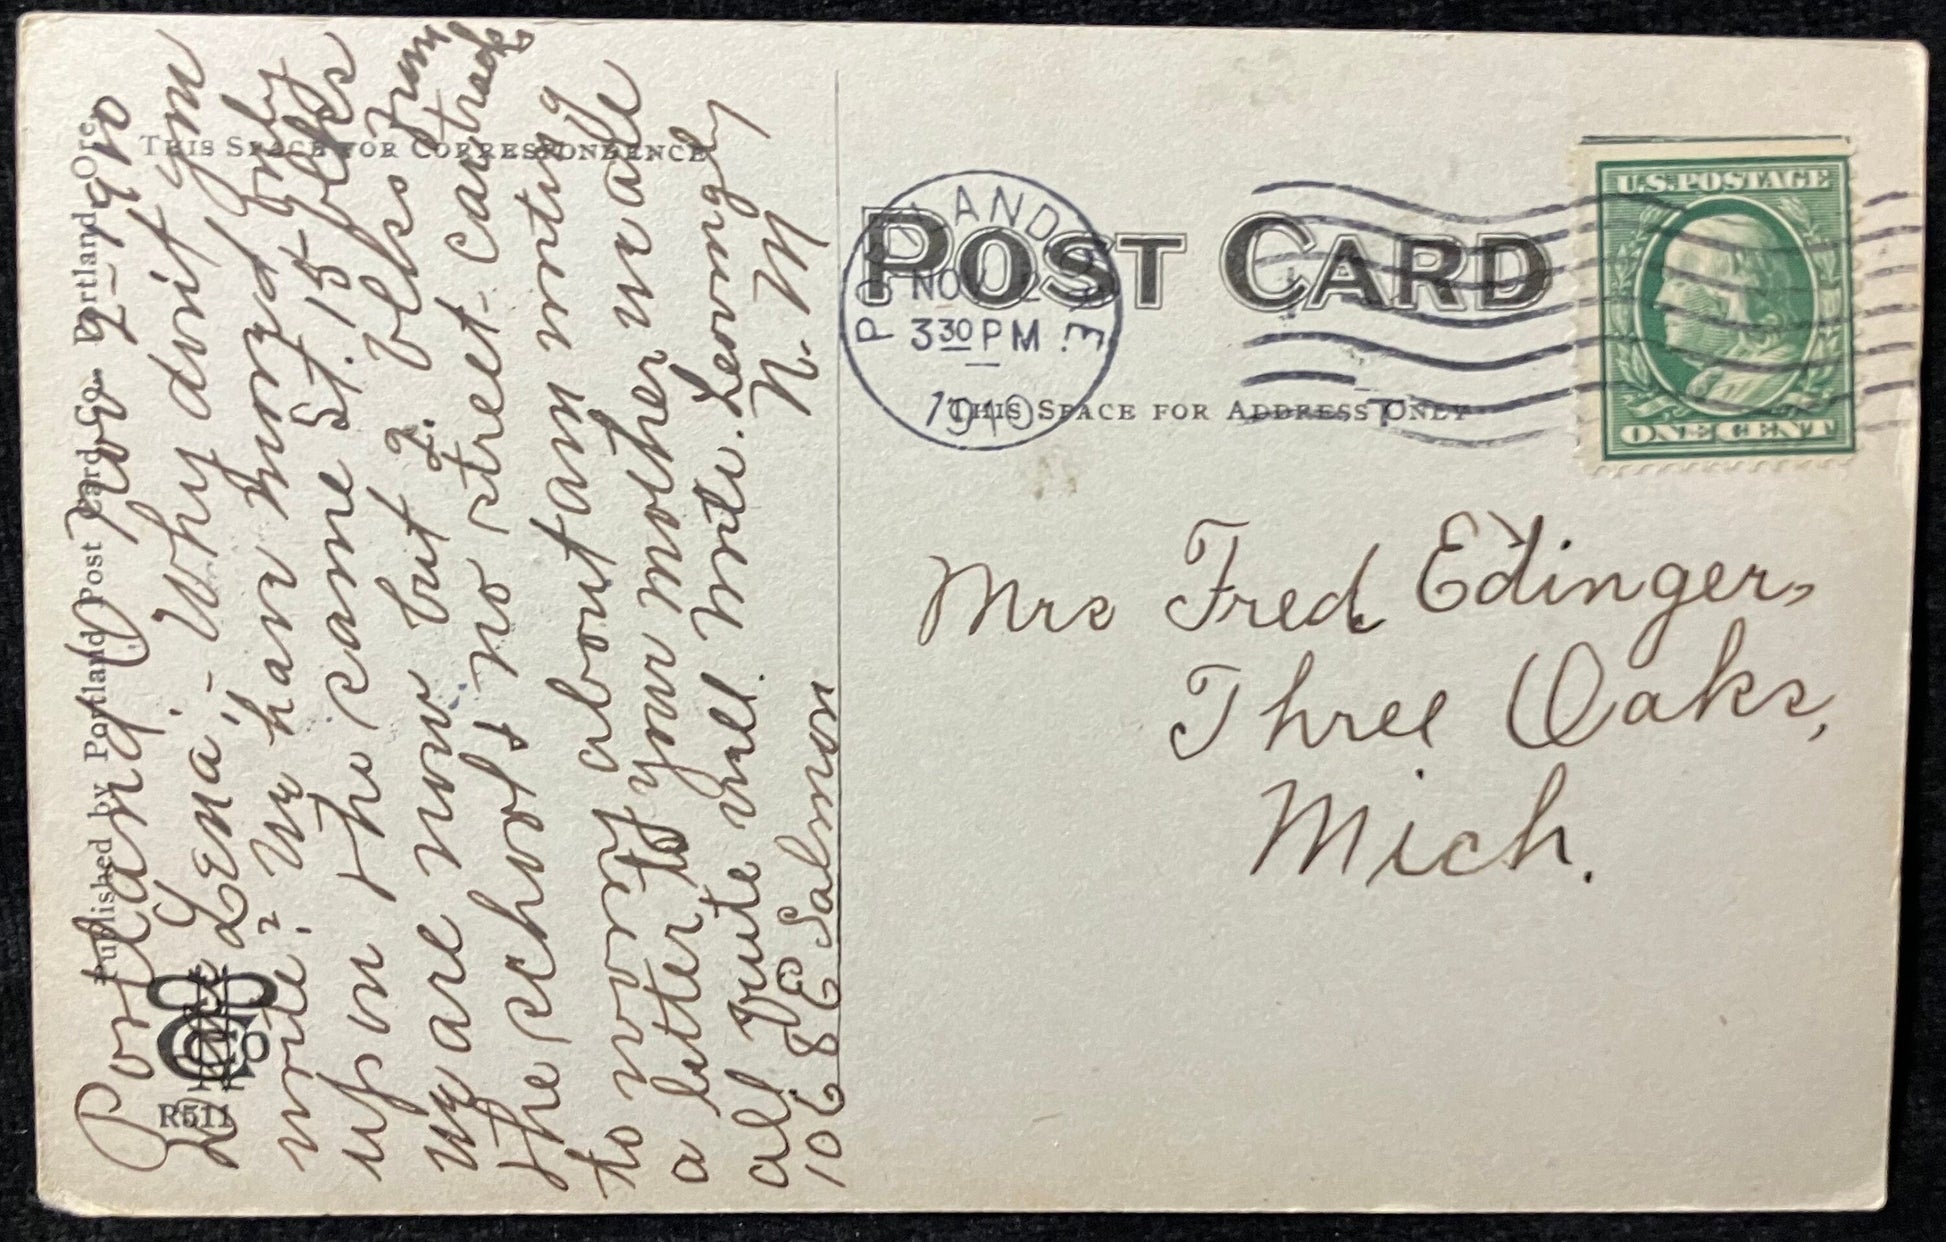 Portland O Nov 2-1910
Dear Lena; - Why don't you
write? We have moved only
upon the same St. 15 blks
We are now but 2 blks from
the school & no street-cartracks
to worry about am writing
a letter to your mother we are
all quite well. Write. Lovingly
1068 E Salmon N. M
Published by Portland Post Card Co. Portland Ore.
THIS SPACE FOR CORRESPONDENCE
R511
Co
POST CARD
THIS SPACE FOR ADDRESS ONLY
PORTLAND, ORE.
NOV 2
3 30 PM
1910
U.S. POSTAGE
ONE CENT
Mrs Fred Edinger,
Three Oaks,
Mich.